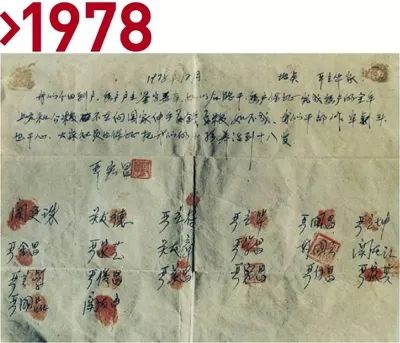 >1978
1978年12月 地点 严立华家
我们分田到户,每户户主签字盖章,如以后能干,每户保证完成每户的全年
上交和公粮,不在向国家伸手要钱要粮,如不成,我们干部作牢杀头
也干心,大家社员也保证把我们的小孩养活到十八岁
严宏昌
关廷珠 关友德 严立符 严立华 严国昌 严立坤
严金昌 严家芝 关友章 严学昌 韩国云 关友江
严立学 严俊昌 严美昌 严宏昌 严付昌 严家其
严国品 关友申